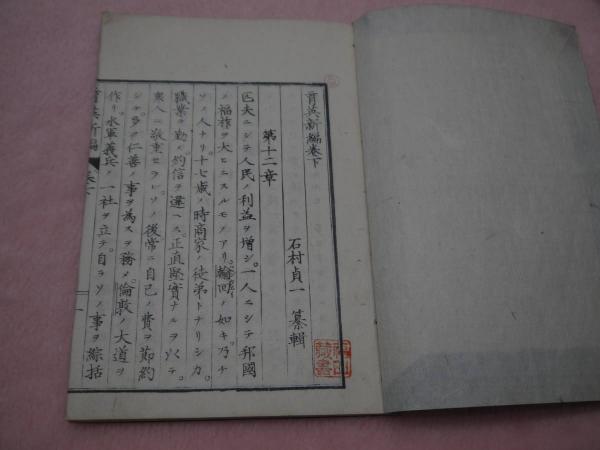 育英新編巻下
石村貞一 纂輯
第十二章
匹夫ニシテ人民ノ利益ヲ増シ。一人ニシテ邦國
ノ福祚ヲ大ヒニスルモノアリ。 ノ如キ。乃チ
ソノ人ナリ。十七歳ノ時商家ノ徒弟トナリシカ。
職業ヲ勤メ。約信ヲ違ヘス。正直堅實ナルヲ以テ。
衆人ニ敬重セラレ。ソノ後常ニ自己ノ費ヲ節約
シテ。多ク仁善ノ事ヲ為スヲ務メ。倫敦ノ大道ヲ
作リ。水軍義兵ノ一社ヲ立テ。自ラソノ事ヲ綜括
育英新編
藏書